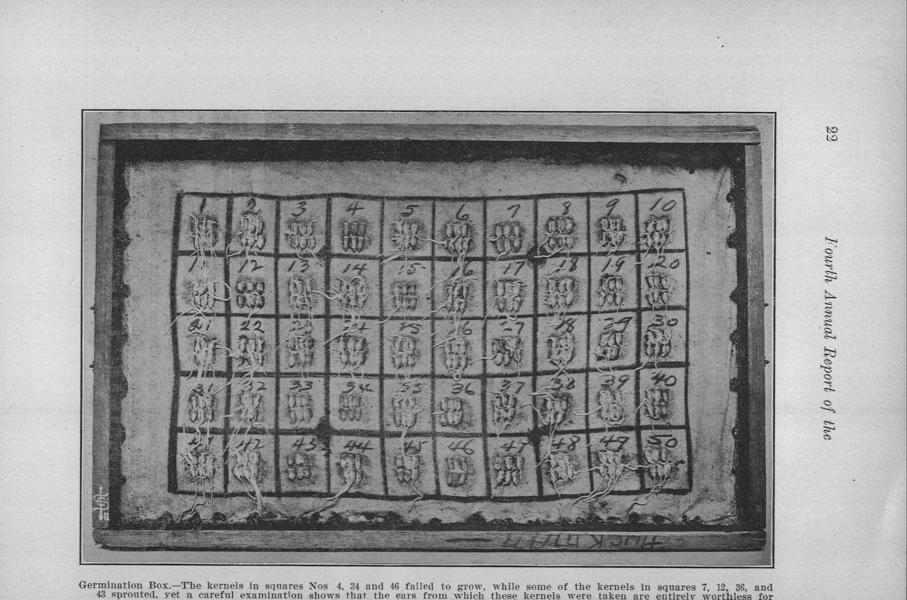 22
Fourth Annual Report of the
1 2 3 4 5 6 7 8 9 10
12 13 14 15 16 17 18 19 20
21 22 23 24 25 26 27 28 29 30
31 32 33 34 35 36 37 38 39 40
41 42 43 44 45 46 47 48 49 50
Germination Box.—The kernels in squares Nos 4, 34 and 46 failed to grow, while some of the kernels in squares 7, 12, 36, and
43 sprouted, yet a careful examination shows that the ears from which these kernels were taken are entirely worthless for